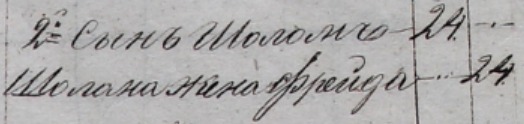 2й Сынъ Шоломъ 24
Шолома жена Фрейда 24